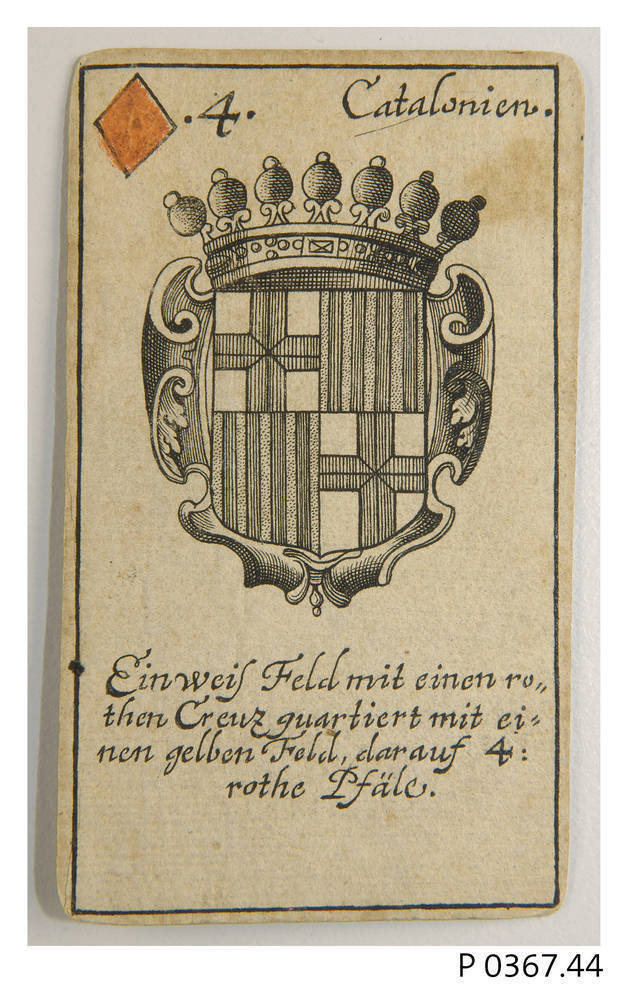 .4. Catalonien.
Ein weiß Feld mit einen ro„
then Creuz quartiert mit ei=
nen gelben Feld, darauf 4:
rothe Pfäle.
P 0367.44